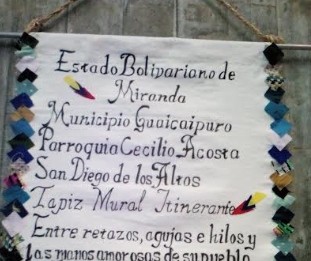 Estado Bolivariano de
Miranda
Municipio Guaicaipuro
Parroquia Cecilio Acosta
San Diego de los Altos
Tapiz Mural Itinerante
Entre retazos, agujas e hilos y
las manos amorosas de su pueblo